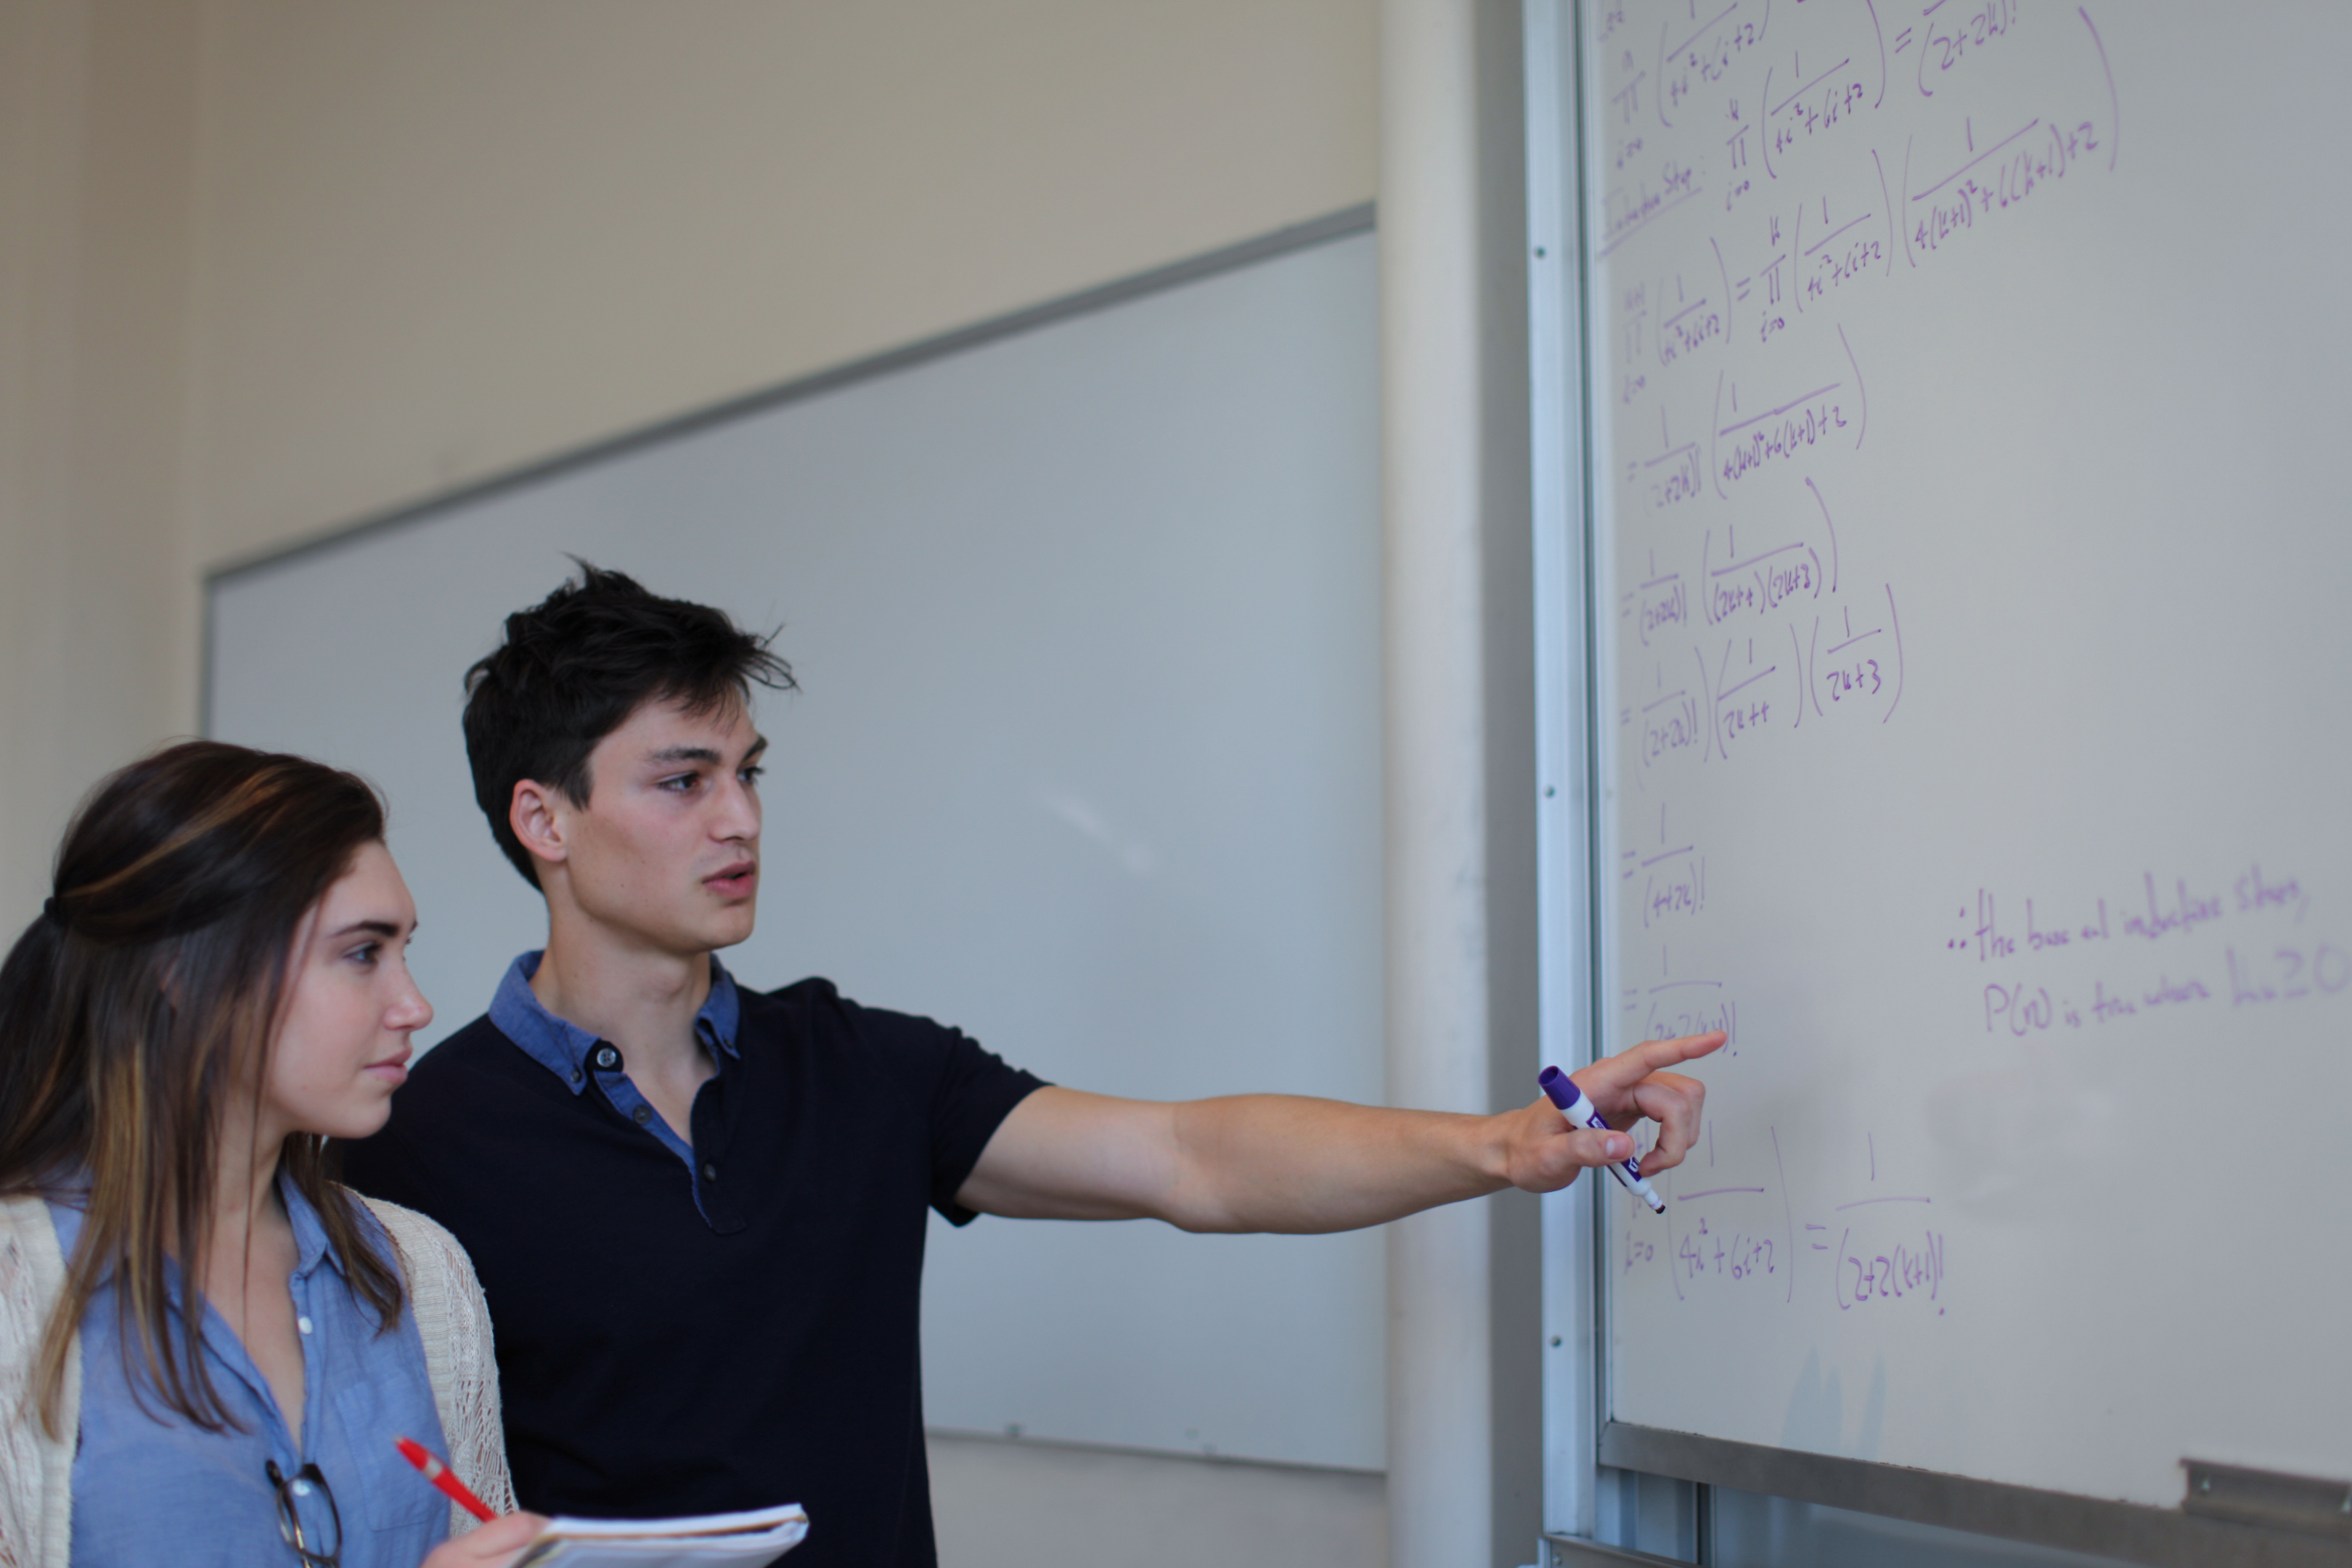 ∏ i=0 n (1/(4i²+6i+2))
Inductive Step: ∏ i=0 k (1/(4i²+6i+2)) = 1/(2+2k)!
∏ i=0 k+1 (1/(4i²+6i+2)) = ∏ i=0 k (1/(4i²+6i+2)) (1/(4(k+1)²+6(k+1)+2))
= 1/(2+2k)! (1/(4(k+1)²+6(k+1)+2))
= 1/(2+2k)! (1/((2k+4)(2k+3)))
= 1/(2+2k)!) (1/(2k+4)) (1/(2k+3))
= 1/(4+2k)!
= 1/(2+2(k+1)!
i=0 (1/(4i²+6i+2)) = 1/(2+2(k+1)!
∴ the base and inductive steps,
P(n) is true where ≥0